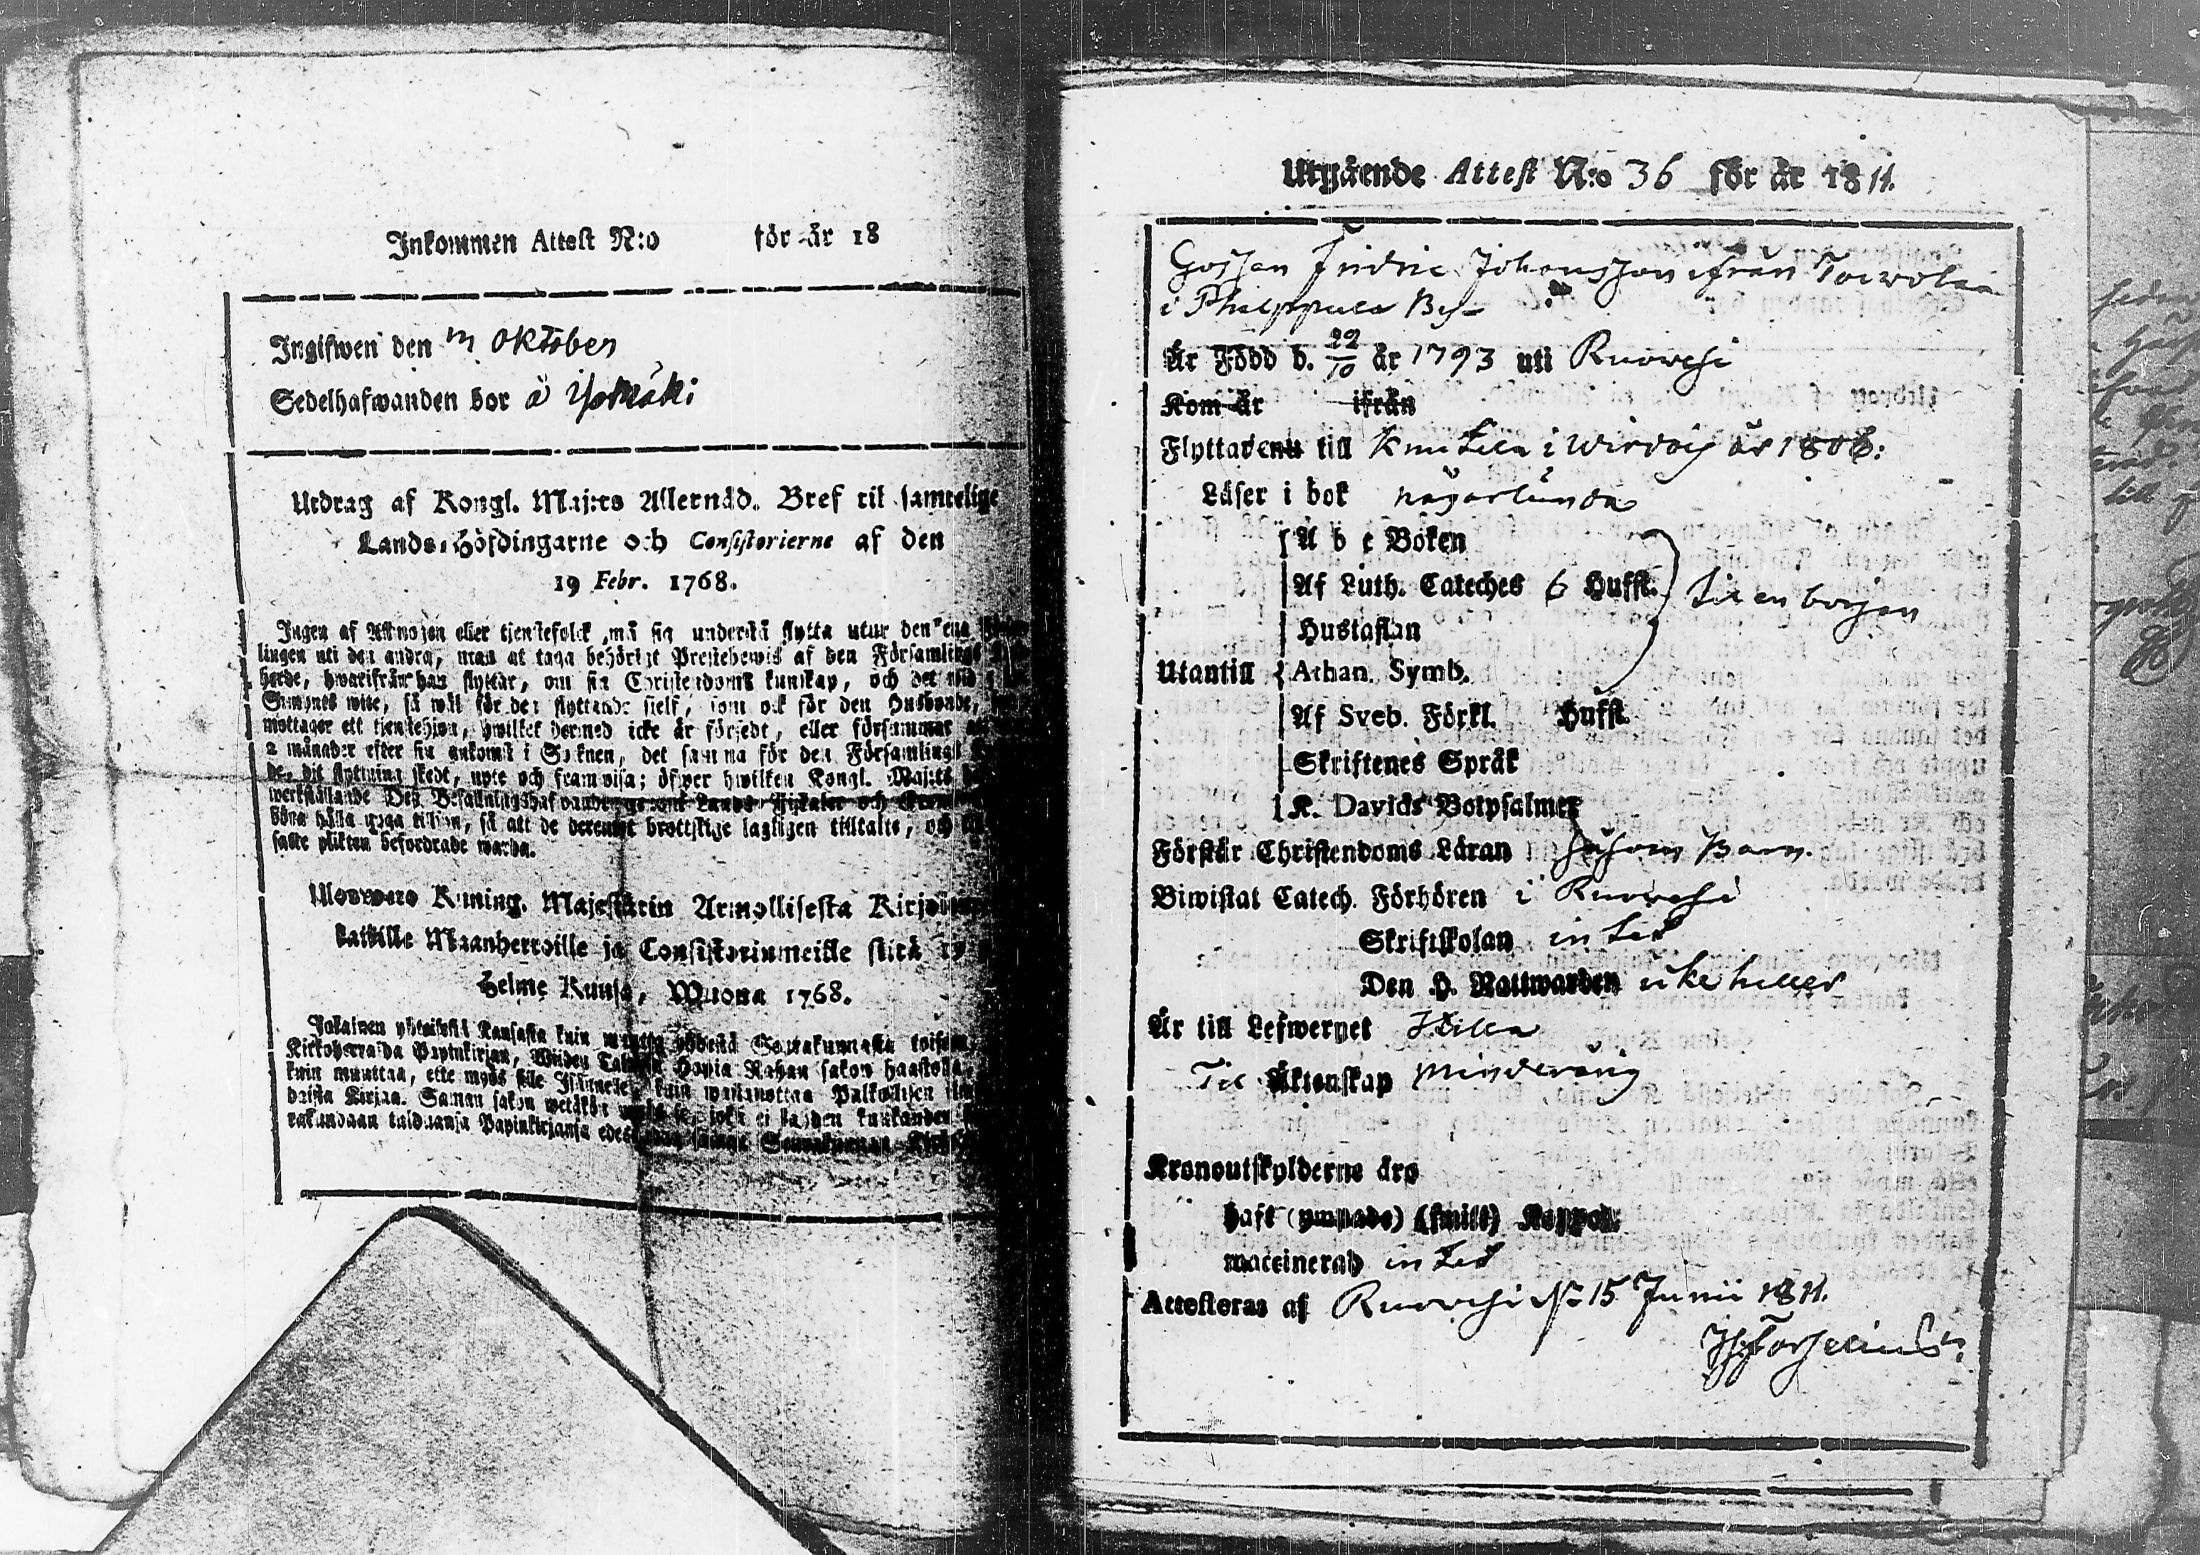 Inkommen Attest N:o för år 18
Ingifwen den m oktober
Sedelhafwanden bor å
Utdrag af Kongl. Maj:ts Allernåd. Bref til samtelige
Lands-Höfdingarne och Consistorierne af den
19 Febr. 1768.
Ingen af Allmogen eller tjenstefolck må sig understå flytta utur den ena
lingen uti den andra, utan at taga behörigt Prestebewis af den Församlings
herde, hwarifrån han flyttar, om sin Christendoms kunskap, och det wid
Smmts wite, så wäl för den flyttande sielf, som ock för den Husbonde,
mottager ett tienstehion, hwilket dermed icke är försedt, eller försummar
2 månader efter sin ankomst i Socknen, det samma för den Församlings
de, dit flyttning skedt, upte och framwisa; öfwer hwilken Kongl. Maj:ts
werkställande Des Befallningshafwande samt Lands Fiskaler och
böra hålla noga tillsyn, så att de deremot brottslige lagligen tilltalte, och
saste plikten befordrade warda.
Uloswero Kuning. Majestätin Armollisesta Kirjasta
kaikille Maanherroille ja Consistoriumeille siitä 19
Helme Kuusa, Wuona 1768.
Jokainen yhteisestä Kansasta kuin muuttaa yhdestä Seurakunnasta toiseen
Kirkoherralda Papinkirjan, Wiiden Talarin Hopia Rahan sakon haastolla,
kuin muuttaa, ette myös sille Isännelle, kuin wastanottaa Palkollisen
daista Kirjaa. Saman sakon wetäköt
rakundaan tulduansa Papinkirjansa edes saman Seurakunnan
Utgående Attest N:o 36 för år 1811.
Gossen Fridric Johansson ifrån Toiwola
i Philppula By
Är Född d. 22/10 år 1793 uti Ruowesi
Kom år ifrån
Flyttade nu till Knutila i Wirdois år 1806:
Läser i bok någorlunda
A b c Boken
Af Luth. Cateches 6 Hufst. til en början
Hustaflan
Utantill Athan. Symb.
Af Sveb. Förkl. Hufst.
Skriftenes Språk
K. Davids Botpsalmer
Förstår Christendoms Läran såsom Barn.
Biwistat Catech. Förhören i Ruowesi
Skriftskolan intet
Den H. Nattwarden icke heller
Är till Lefwernet Stilla
Til Äktenskap minderårig
Kronoutskylderne äro
haft (ympade) (smitt) Koppor.
waccinerad intet
Attesteras af Ruowesi d. 15 Junii 1811.